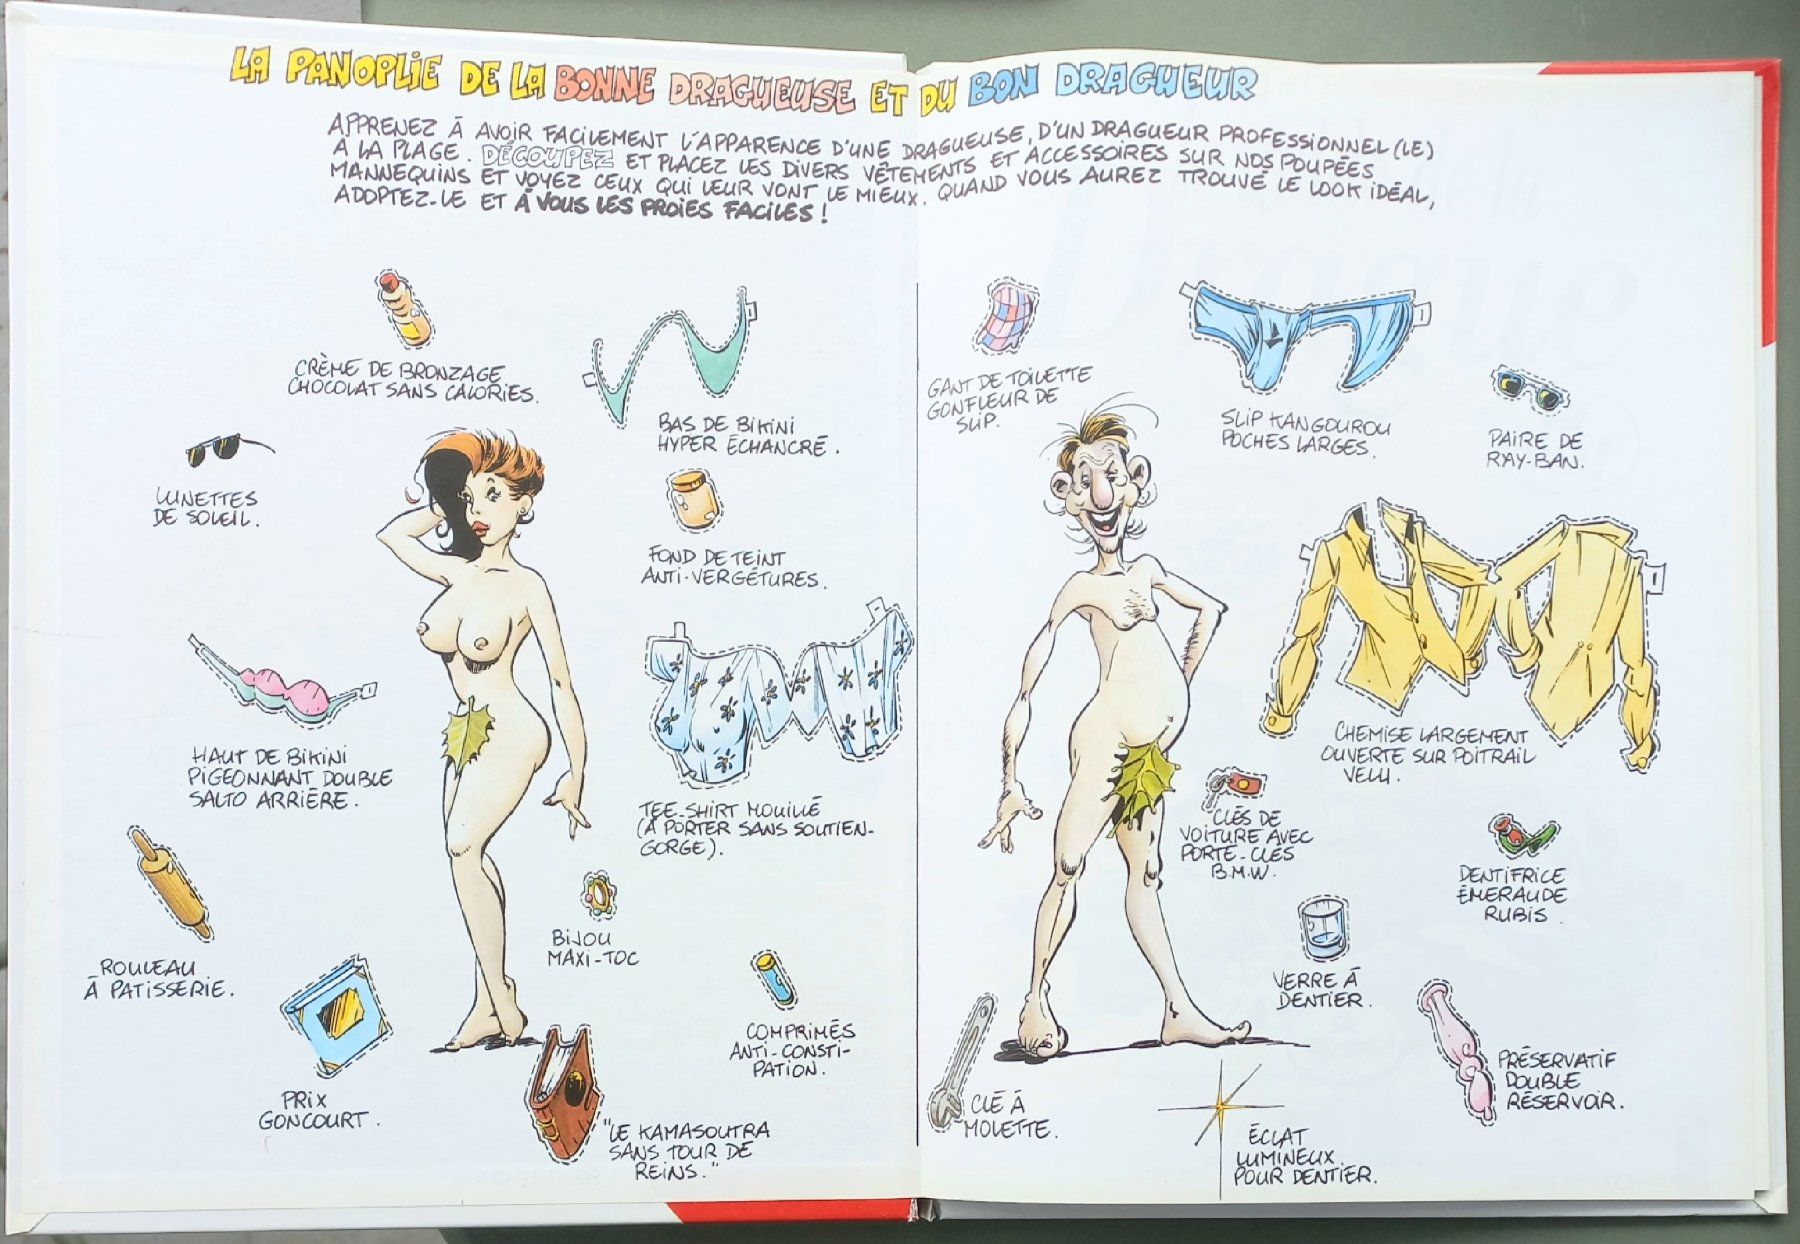 LA PANOPLIE DE LA BONNE DRAGUEUSE ET DU BON DRAGUEUR
APPRENEZ À AVOIR FACILEMENT L'APPARENCE D'UNE DRAGUEUSE, D'UN DRAGUEUR PROFESSIONNEL (LE)
À LA PLAGE. DÉCOUPEZ ET PLACEZ LES DIVERS VÊTEMENTS ET ACCESSOIRES SUR NOS POUPÉES
MANNEQUINS ET VOYEZ CEUX QUI LEUR VONT LE MIEUX. QUAND VOUS AUREZ TROUVÉ LE LOOK IDÉAL,
ADOPTEZ-LE ET À VOUS LES PROIES FACILES !
CRÈME DE BRONZAGE
CHOCOLAT SANS CALORIES.
BAS DE BIKINI
HYPER ÉCHANCRÉ.
LUNETTES
DE SOLEIL.
FOND DE TEINT
ANTI-VERGÉTURES.
HAUT DE BIKINI
PIGEONNANT DOUBLE
SALTO ARRIÈRE.
TEE-SHIRT MOUILLÉ
(À PORTER SANS SOUTIEN-
GORGE).
ROULEAU
À PATISSERIE.
BIJOU
MAXI-TOC
PRIX
GONCOURT.
COMPRIMÉS
ANTI-CONSTI-
PATION.
"LE KAMASOUTRA
SANS TOUR DE
REINS."
GANT DE TOILETTE
GONFLEUR DE
SLIP.
SLIP KANGOUROU
POCHES LARGES.
PAIRE DE
RAY-BAN.
CHEMISE LARGEMENT
OUVERTE SUR POITRAIL
VELU.
CLÉS DE
VOITURE AVEC
PORTE-CLÉS
B.M.W.
DENTIFRICE
ÉMERAUDE
RUBIS.
VERRE À
DENTIER.
CLÉ À
MOLETTE.
PRÉSERVATIF
DOUBLE
RÉSERVOIR.
ÉCLAT
LUMINEUX
POUR DENTIER.